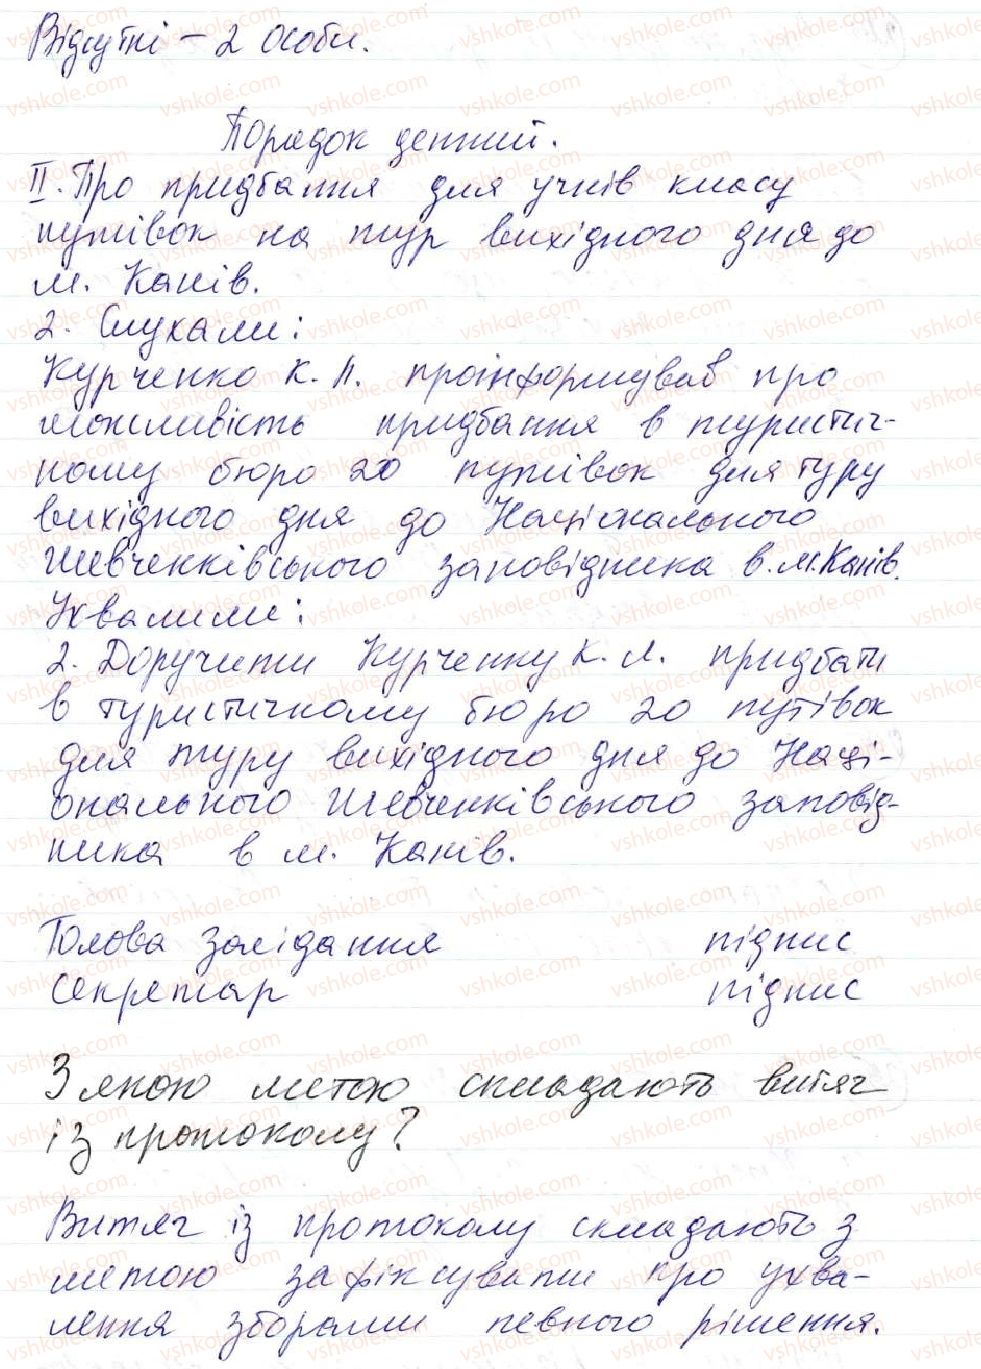 Відсутні – 2 особи.
Порядок денний.
II. Про придбання для учнів класу
путівок на тур вихідного дня до
м. Канів.
2. Слухали:
Курченко К. Л. проінформував про
можливість придбання в туристич-
ному бюро 20 путівок для туру
вихідного дня до Національного
Шевченківського заповідника в м. Канів.
Ухвалили:
2. Доручити Курченку К. Л. придбати
в туристичному бюро 20 путівок
для туру вихідного дня до Наці-
онального Шевченківського заповід-
ника в м. Канів.
Голова засідання підпис
Секретар підпис
З якою метою складають витяг
із протоколу?
Витяг із протоколу складають з
метою зафіксувати про ухва-
лення зборами певного рішення.